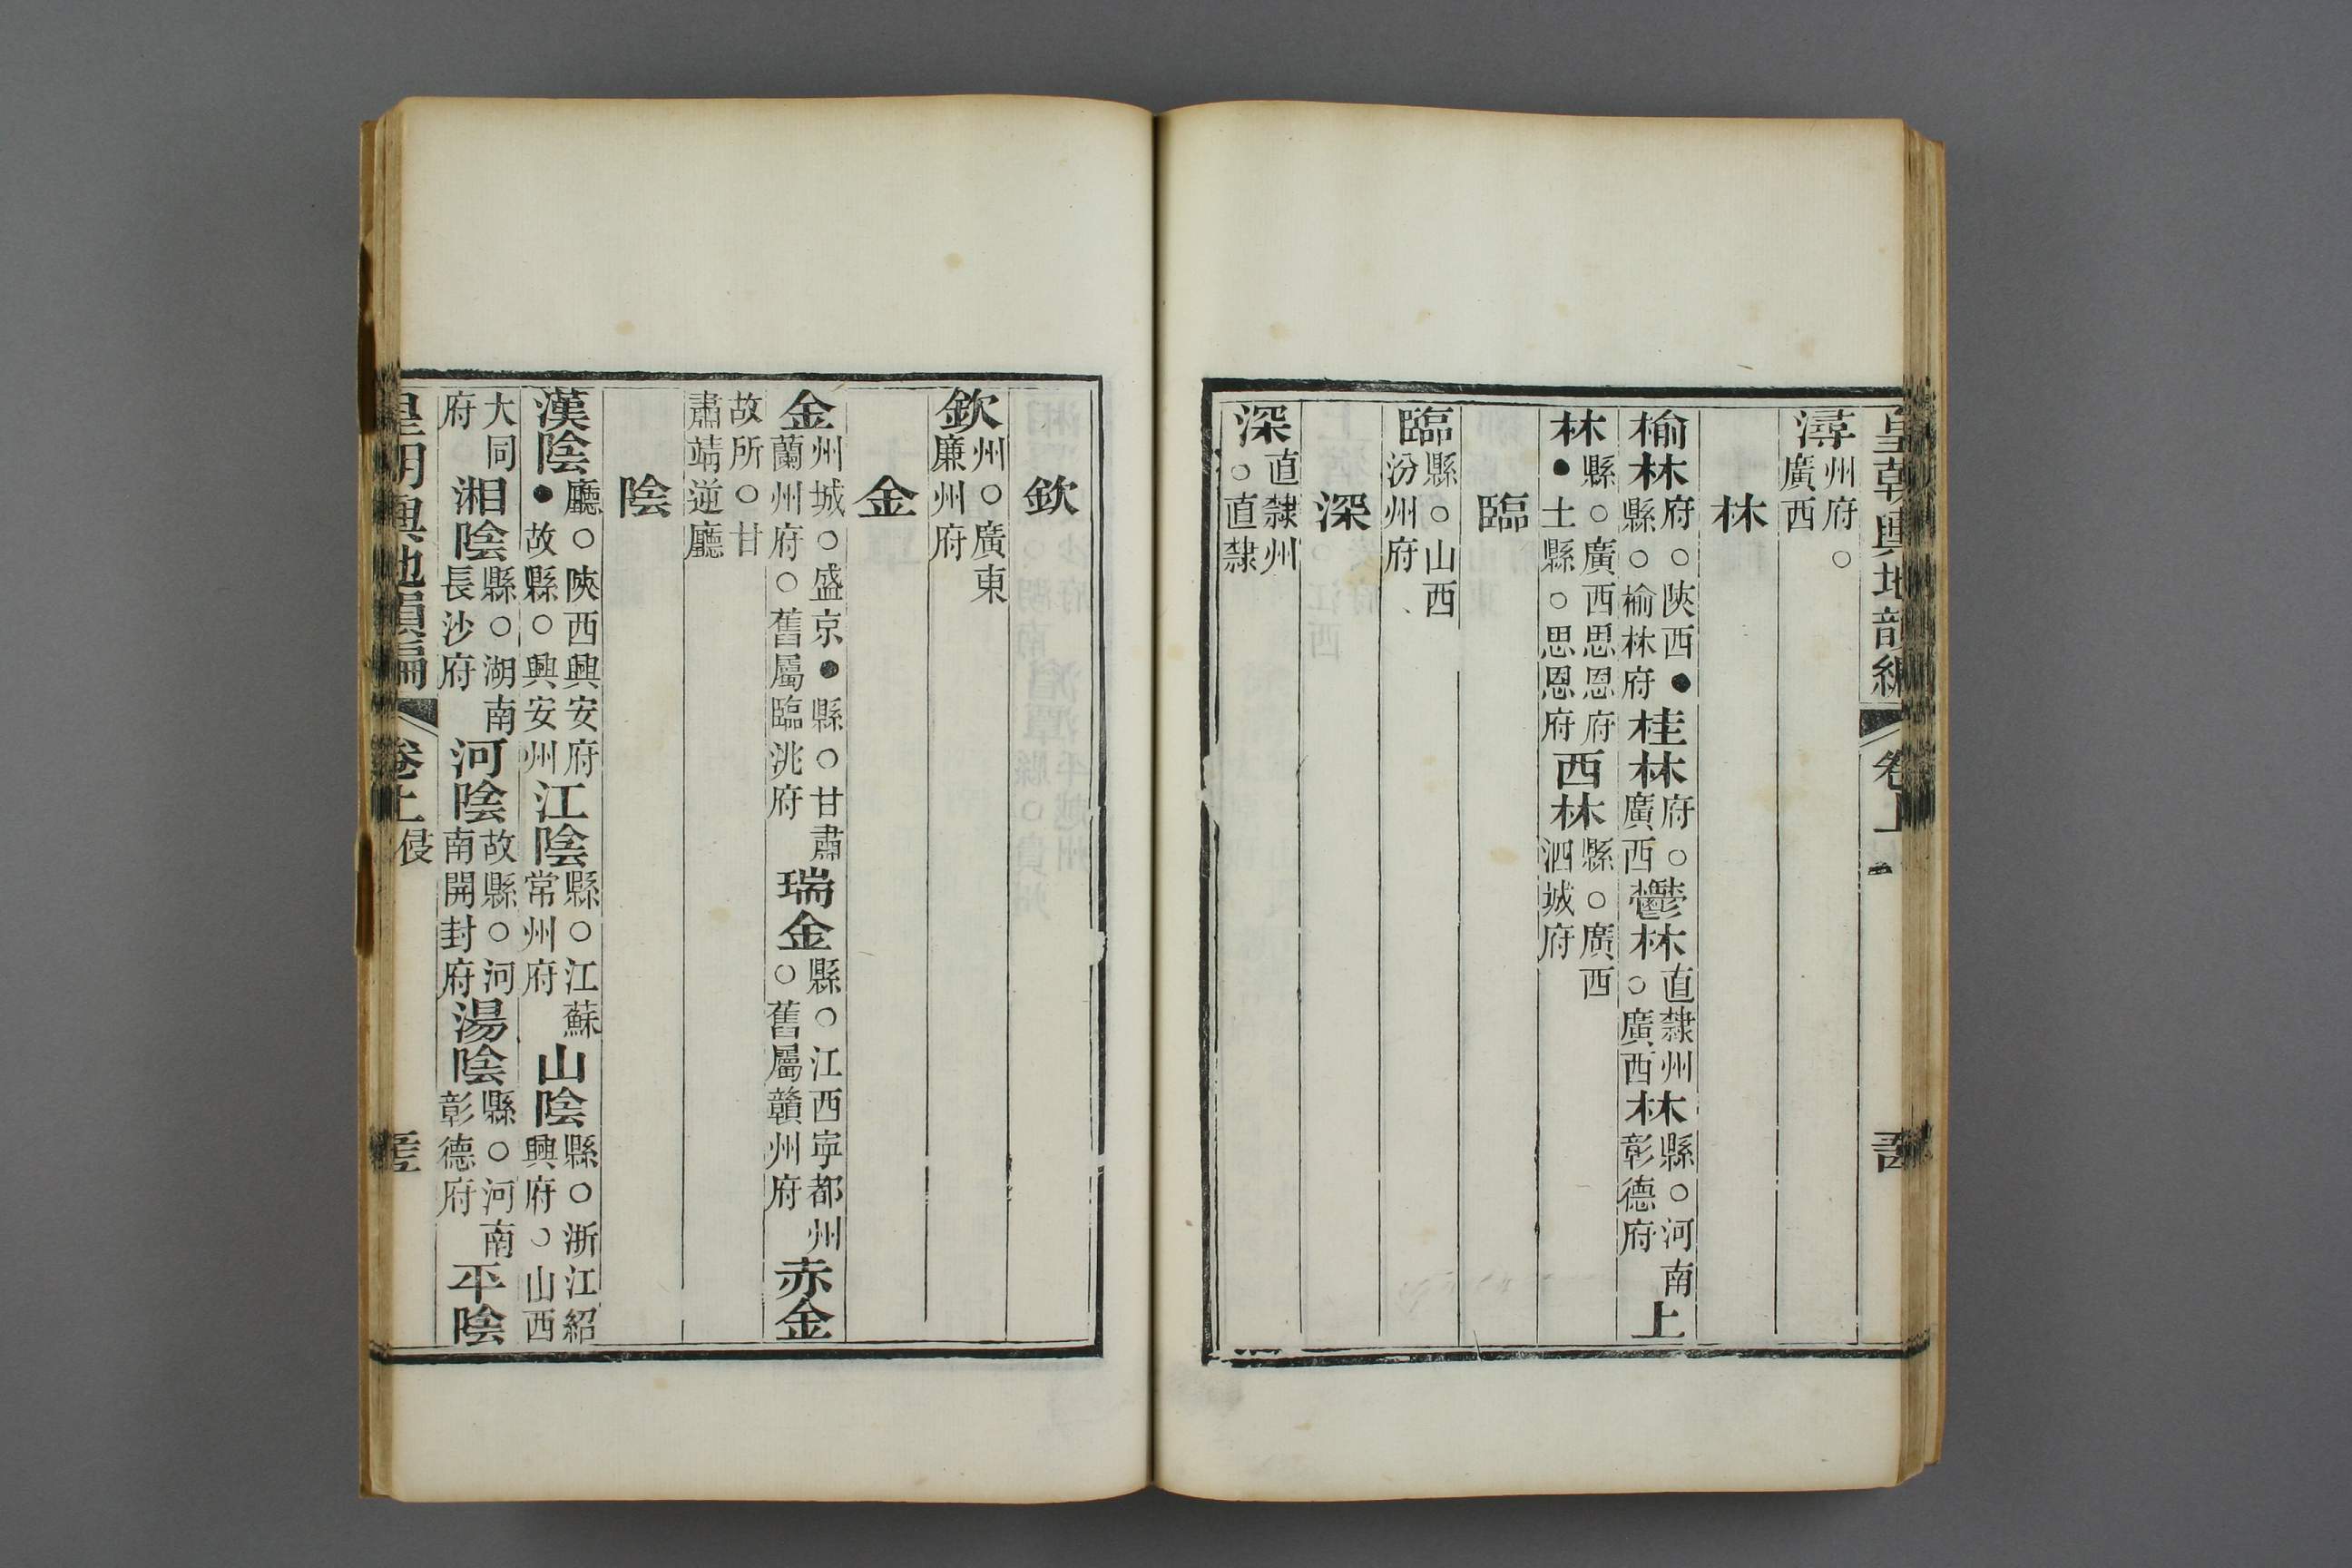 皇朝輿地韻編 卷上
潯州府○廣西
林
榆林府○陝西●縣○榆林府桂林府○廣西鬱林直隸州○廣西林縣○河南彰德府上
林縣○廣西思恩府●土縣○思恩府西林縣○廣西泗城府
臨
臨縣○山西汾州府
深
深直隸州○直隸
欽
欽州○廣東廉州府
金
金州城○盛京●縣○甘肅蘭州府○舊屬臨洮府瑞金縣○江西寧都州○舊屬贛州府赤金
故所○甘肅靖逆廳
陰
漢陰廳○陝西興安府●故縣○興安州江陰縣○江蘇常州府山陰縣○浙江紹興府○山西
大同府湘陰縣○湖南長沙府河陰故縣○河南開封府湯陰縣○河南彰德府平陰
皇朝輿地韻編 卷上 侵